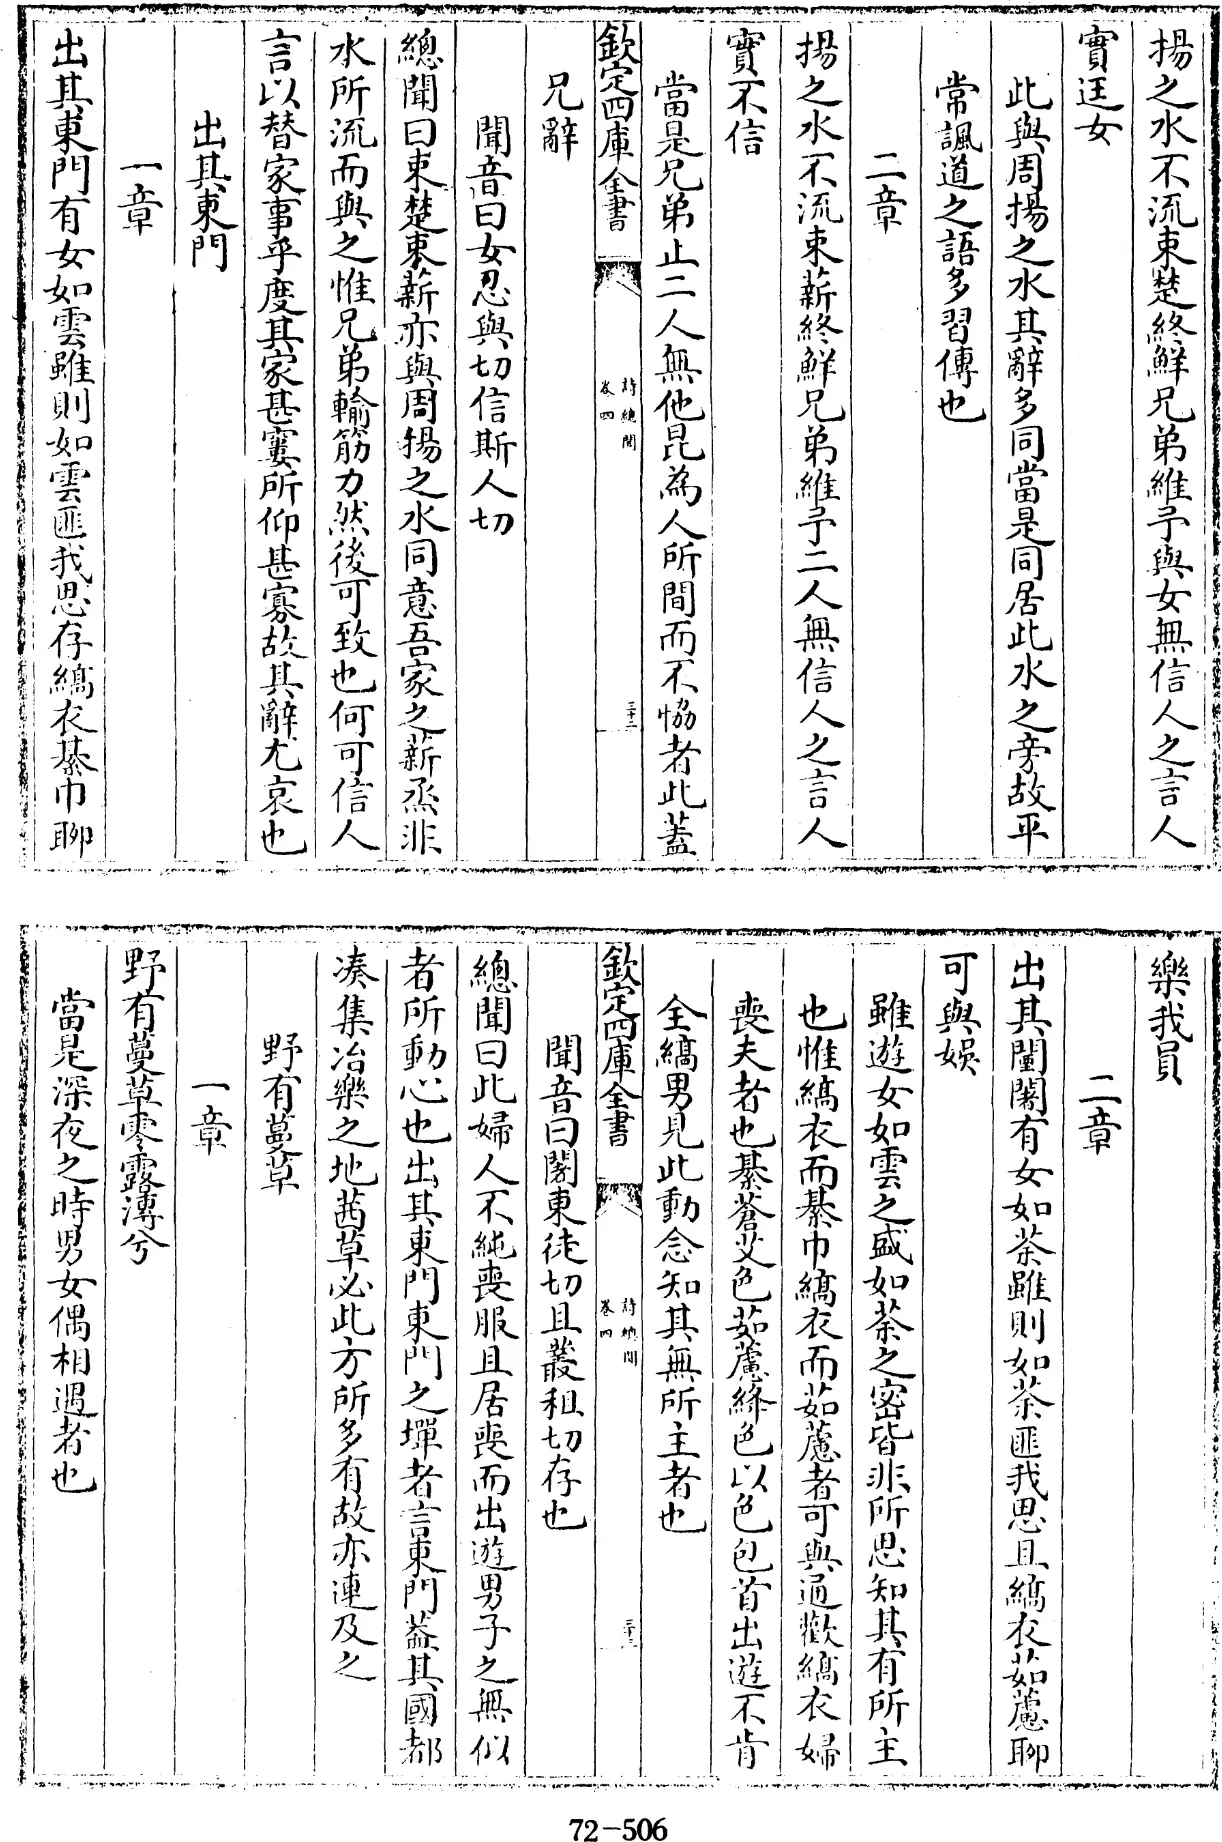 揚之水不流束楚終鮮兄弟維予與女無信人之言人
實迋女
此與周揚之水其辭多同當是同居此水之旁故平
常諷道之語多習傳也
二章
揚之水不流束薪終鮮兄弟維予二人無信人之言人
實不信
當是兄弟止二人無他昆為人所間而不恊者此蓋
欽定四庫全書
詩總聞
卷四
三十二
兄辭
聞音曰女忍與切信斯人切
總聞曰束楚束薪亦與周揚之水同意吾家之薪烝非
水所流而與之惟兄弟輸筋力然後可致也何可信人
言以替家事乎度其家甚寠所仰甚寡故其辭尤哀也
出其東門
一章
出其東門有女如雲雖則如雲匪我思存縞衣綦巾聊
樂我員
二章
出其闉闍有女如荼雖則如荼匪我思且縞衣茹藘聊
可與娛
雖遊女如雲之盛如荼之密皆非所思知其有所主
也惟縞衣而綦巾縞衣而茹藘者可與通歡縞衣婦
喪夫者也綦蒼艾色茹藘絳色以色包首出遊不肯
全縞男見此動念知其無所主者也
欽定四庫全書
詩總聞
卷四
三十三
聞音曰闍東徒切且叢租切存也
總聞曰此婦人不純喪服且居喪而出遊男子之無似
者所動心也出其東門東門之墠者言東門葢其國都
凑集冶樂之地茜草必此方所多有故亦連及之
野有蔓草
一章
野有蔓草零露漙兮
當是深夜之時男女偶相遇者也
72-506